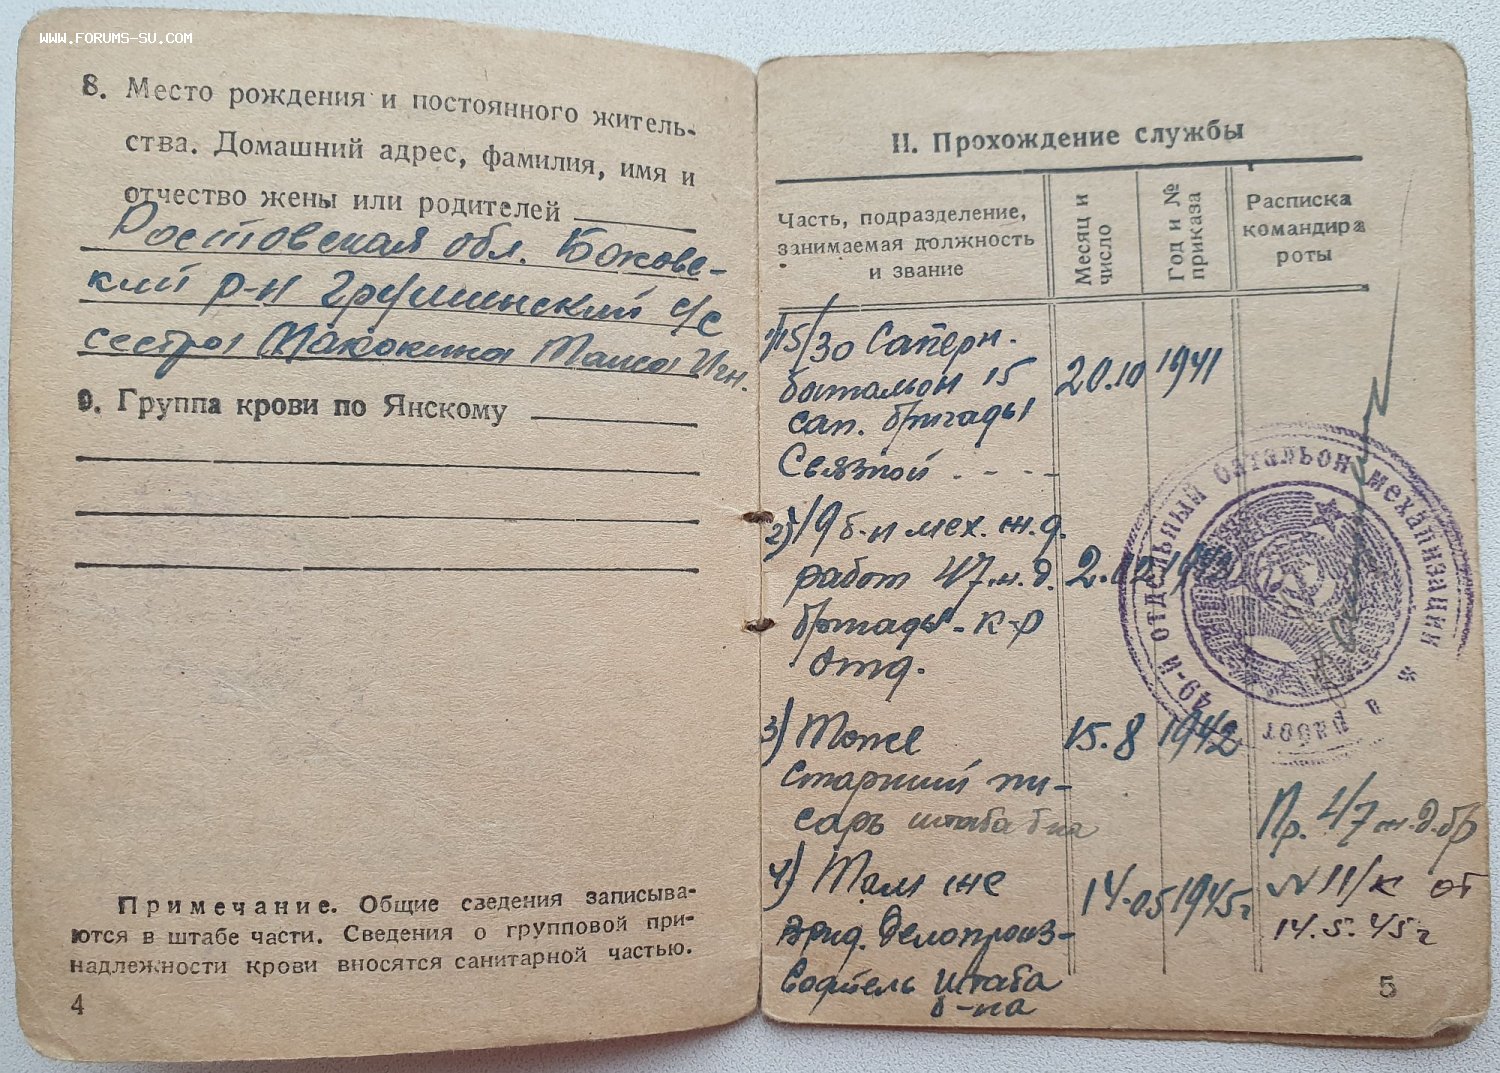 WWW.FORUMS-SU.COM
8. Место рождения и постоянного житель-
ства. Домашний адрес, фамилия, имя и
отчество жены или родителей
Ростовская обл. Боковс-
кий р-н Грушинский с/с
сестра Таиса Игн.
9. Группа крови по Янскому
Примечание. Общие сведения записыва-
ются в штабе части. Сведения о групповой при-
надлежности крови вносятся санитарной частью.
4
II. Прохождение службы
Часть, подразделение,
занимаемая должность
и звание
Месяц и
число
Год и №
приказа
Расписка
командира
роты
1) 15/30 Саперн.
батальон 15
сап. бригады
Связной - - - -
20.10 1941
2) 19 б-н мех. ж.д.
работ 47 ж.д.
бригады - к-р
отд.
3) Тоже
старший пи-
сарь штаба б-на
15.8 1942
4) Там же
делопроиз-
водитель штаба
б-на
14.05 1945г
Пр. 47 ж.д.бр
№ 11/к от
14.5.45г
49-й отдельный батальон механизации
работ
5